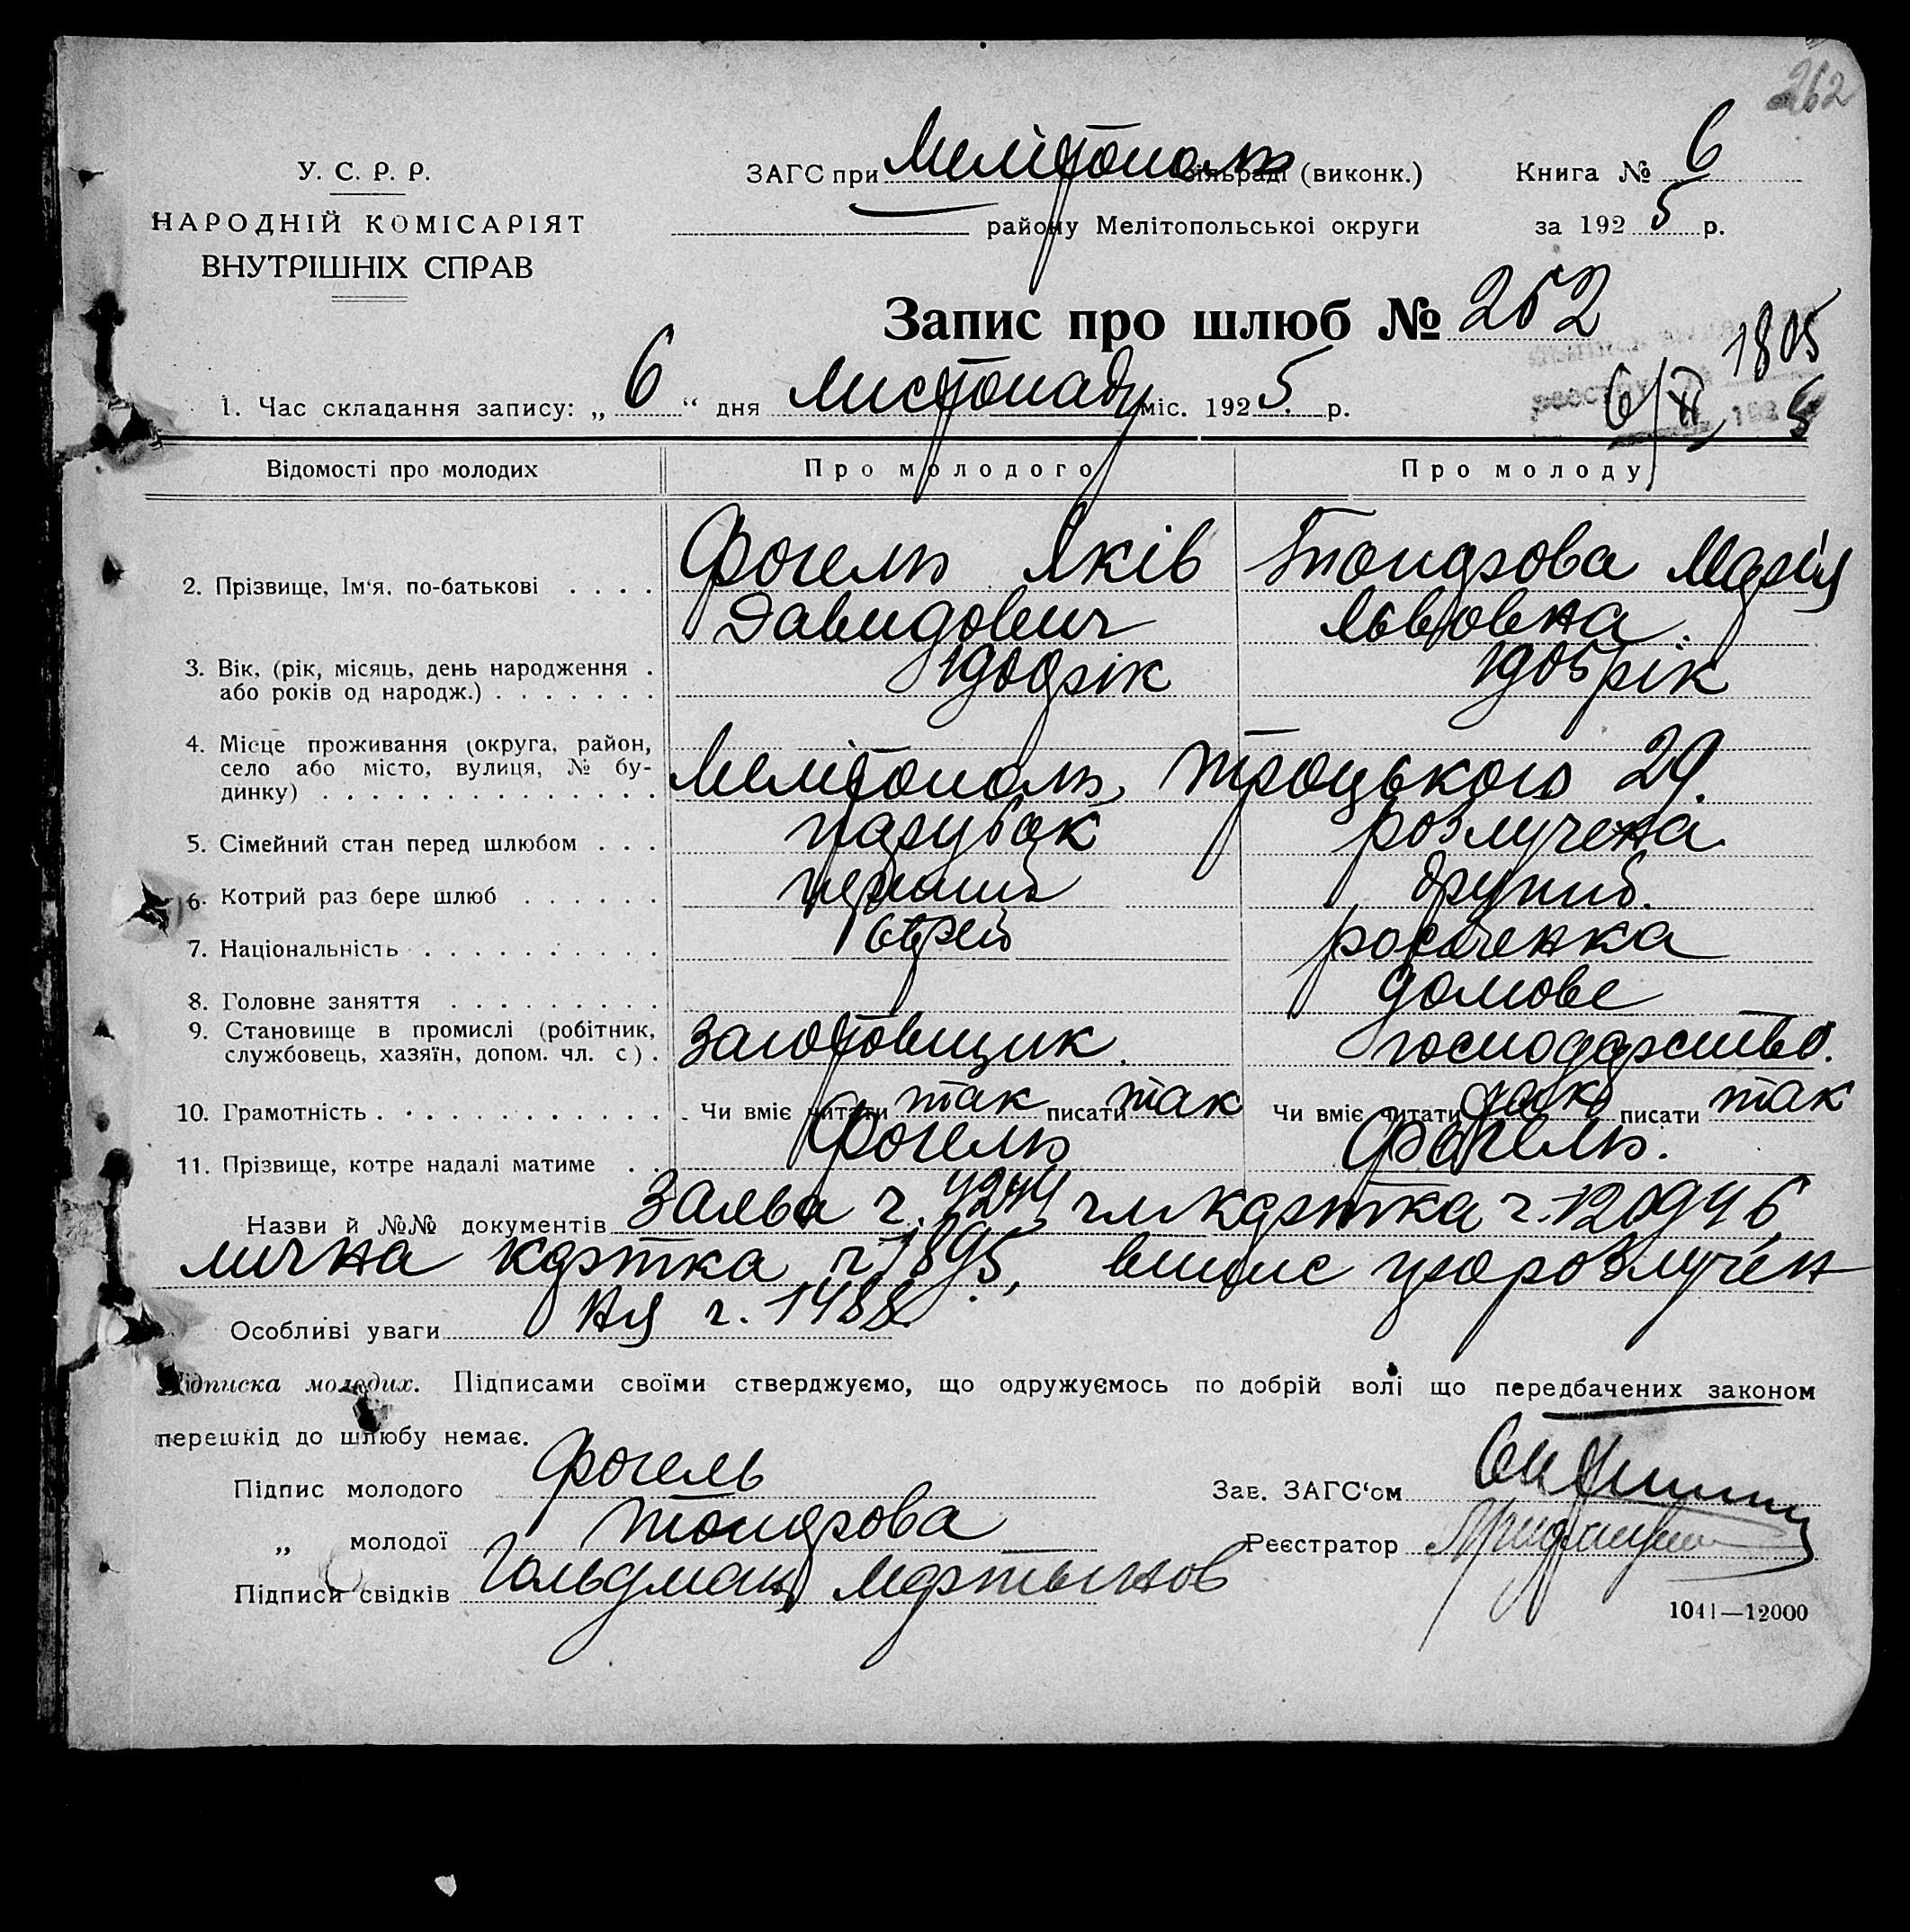 262
У. С. Р. Р.
НАРОДНІЙ КОМІСАРІЯТ
ВНУТРІШНІХ СПРАВ
ЗАГС при Мелітополь сільраді (виконк.)
району Мелітопольскоі округи
Книга № 6
за 1925 р.
Запис про шлюб № 252
1805
1. Час складання запису: „6“ дня листопаду міс. 1925 р.
6/XI 1925
Відомості про молодих Про молодого Про молоду
2. Прізвище, Ім'я, по-батькові . . . . Фогель Яків Топдрова Марія
Давидович Львовна.
3. Вік, (рік, місяць, день народження .
або років од народж.) . . . . . . . рік 1905 рік
4. Місце проживання (округа, район,
село або місто, вулиця, № бу-
динку) . . . . . . . . . . . . . . Мелітополь, Троцького 29.
5. Сімейний стан перед шлюбом . . . парубок розлучена
6. Котрий раз бере шлюб . . . . . . перший другий.
7. Національність . . . . . . . . . . . еврей росіенка
8. Головне заняття . . . . . . . . . домове
9. Становище в промислі (робітник,
службовець, хазяїн, допом. чл. с) . заготовщик. господарство.
10. Грамотність . . . . . . . . . . . . Чи вміє читати так писати так Чи вміє читати так писати так
11. Прізвище, котре надалі матиме . . Фогель Фогель.
Назви й №№ документів Заява ч. 7244 чл картка ч. 120946
лична картка ч 1895, випис про розлучен
Особливі уваги ня ч. 1488
Підписка молодих. Підписами своїми стверджуємо, що одружуємось по добрій волі що передбачених законом
перешкід до шлюбу немає.
Підпис молодого Фогель
Зав. ЗАГС'ом
„ молодої Топдрова
Реєстратор
Підписи свідків Гольдман Мартынов
1041—12000